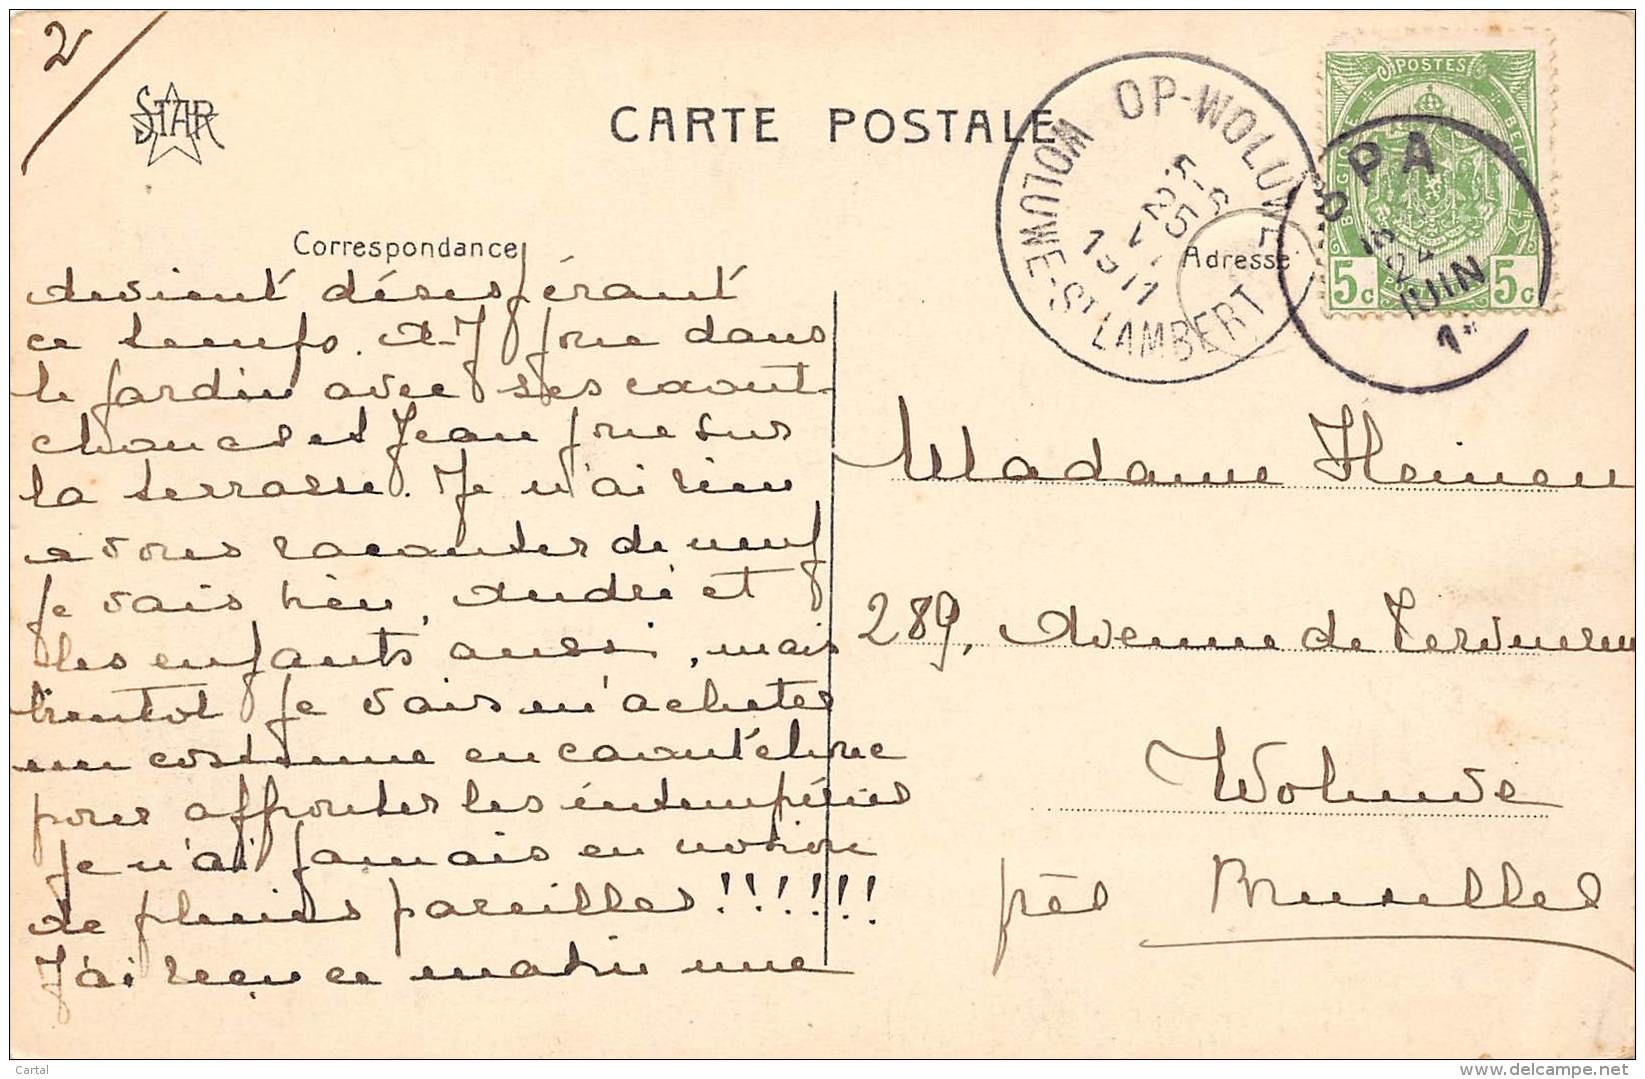 2
STAR
CARTE POSTALE
WOLUWE-ST LAMBERT OP-WOLUWE
5-6
25
VI
1911
POSTES
BELGIQUE
5c 5c
SPA
24
JUIN
Correspondance
Adresse
devient désespérant
ce temps. A-J joue dans
le jardin avec ses caout-
choucs et Jean joue sur
la terrasse. Je n'ai rien
a vous raconter de neuf
je vais bien, André et
les enfants aussi, mais
bientot je vais m'acheter
un costume en caoutchouc
pour affronter les intempéries
Je n'ai jamais eu notion
de pluies pareilles !!!!!!
J'ai reçu ce matin une
Madame Heinen
289, Avenue de Tervueren
Woluwe
près Bruxelles
Cartal
delcampe.net